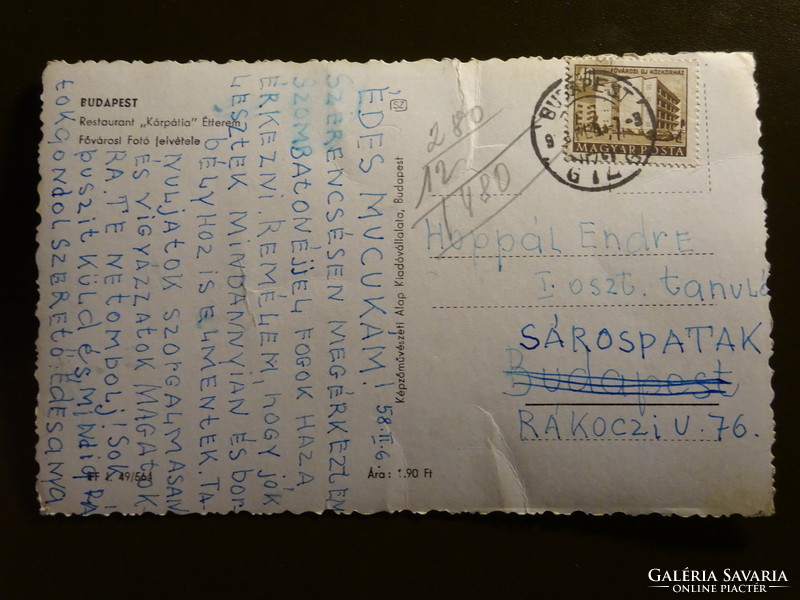 BUDAPEST
Restaurant „Kárpátia” Étterem
Fővárosi Fotó felvétele
ÉDES MUCUKÁM! 58.II.6.
SZERENCSÉSEN MEGÉRKEZTEM
SZOMBATON ÉJJEL FOGOK HAZA
ÉRKEZNI. REMÉLEM, HOGY JÓK
LESZTEK MINDANNYIAN ÉS BOR-
BÉLYHOZ IS ELMENTEK. TA-
NULJATOK SZORGALMASAN
ÉS VIGYÁZZATOK MAGATOK-
RA. TE NE TOMBOLJ! SOK
PUSZIT KÜLD ÉS MINDIG RÁ-
TOK GONDOL SZERETŐ: ÉDESANYA
RF I. 49/564
Ára: 1.90 Ft
Képzőművészeti Alap Kiadóvállalata, Budapest
280
12
1480
FŐVÁROSI ÚJ KÖZKÓRHÁZ
MAGYAR POSTA
BUDAPEST
Hoppál Endre
I. oszt. tanuló
SÁROSPATAK
Budapest
RÁKOCZI U. 76.
GALÉRIA SAVARIA
ONLINE PIACTÉR